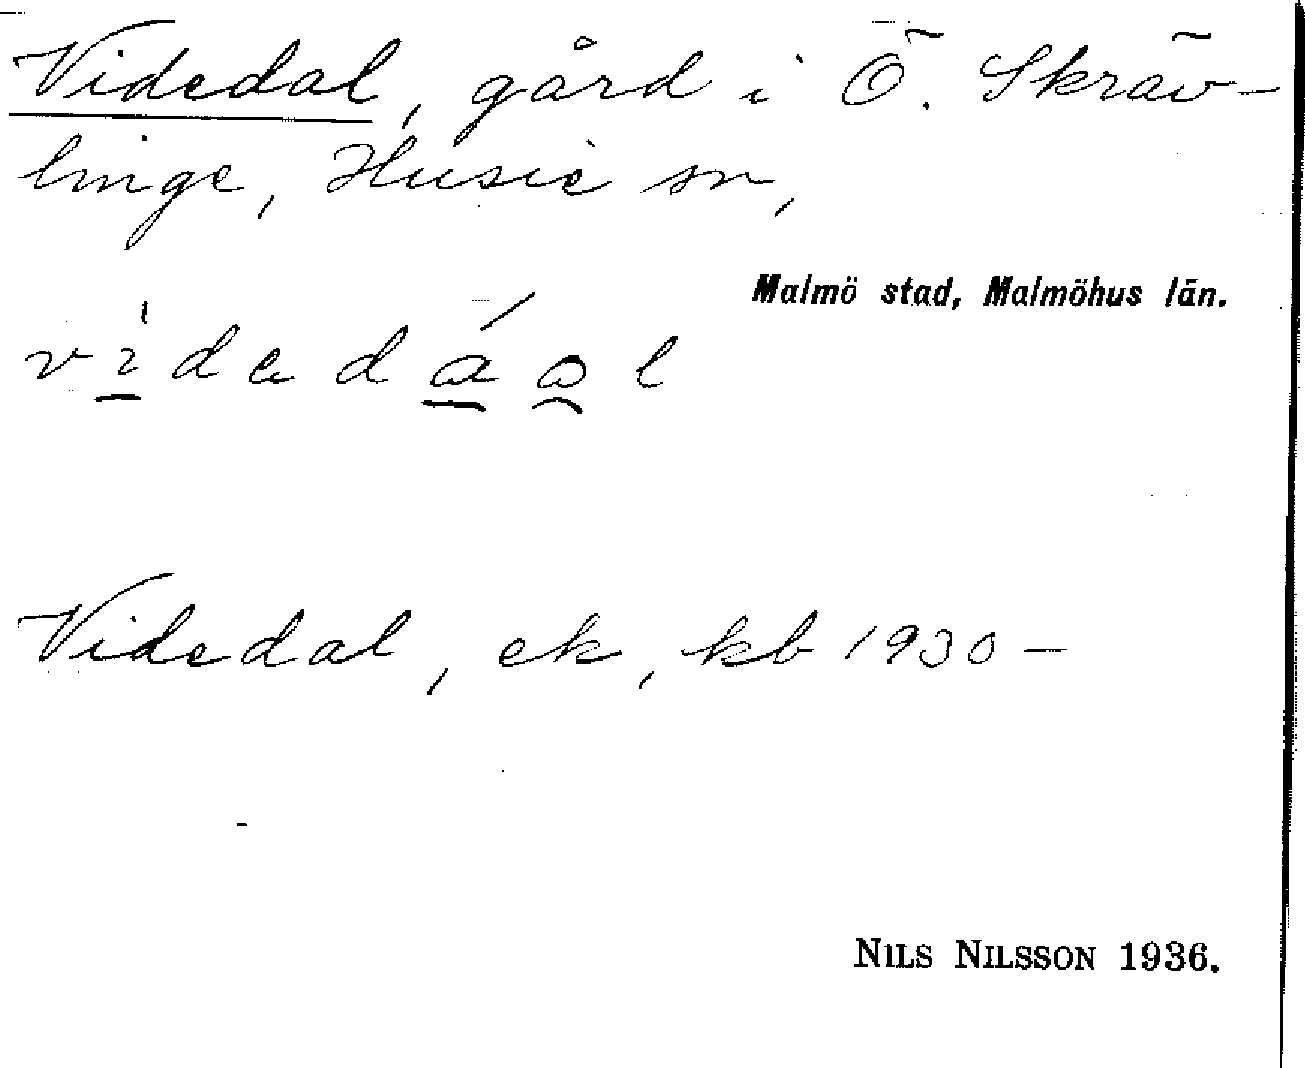 Videdal, gård i Ö. Skräv-
linge, Husie sn,
Malmö stad, Malmöhus län.
Videdal, ek, kb 1930 –
NILS NILSSON 1936.